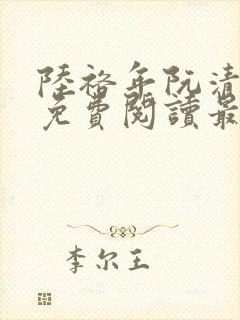 陸裕年阮清
免費閱讀最
李尔王